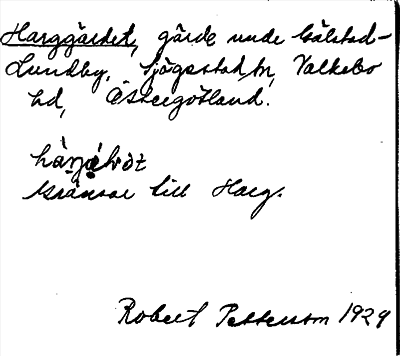 Harggärdet, gärde unde Gälstad-
Lundby, Sjögestad sn, Valkebo
hd, Östergötland.
Gränsar till Harg.
Robert Pettersson 1929